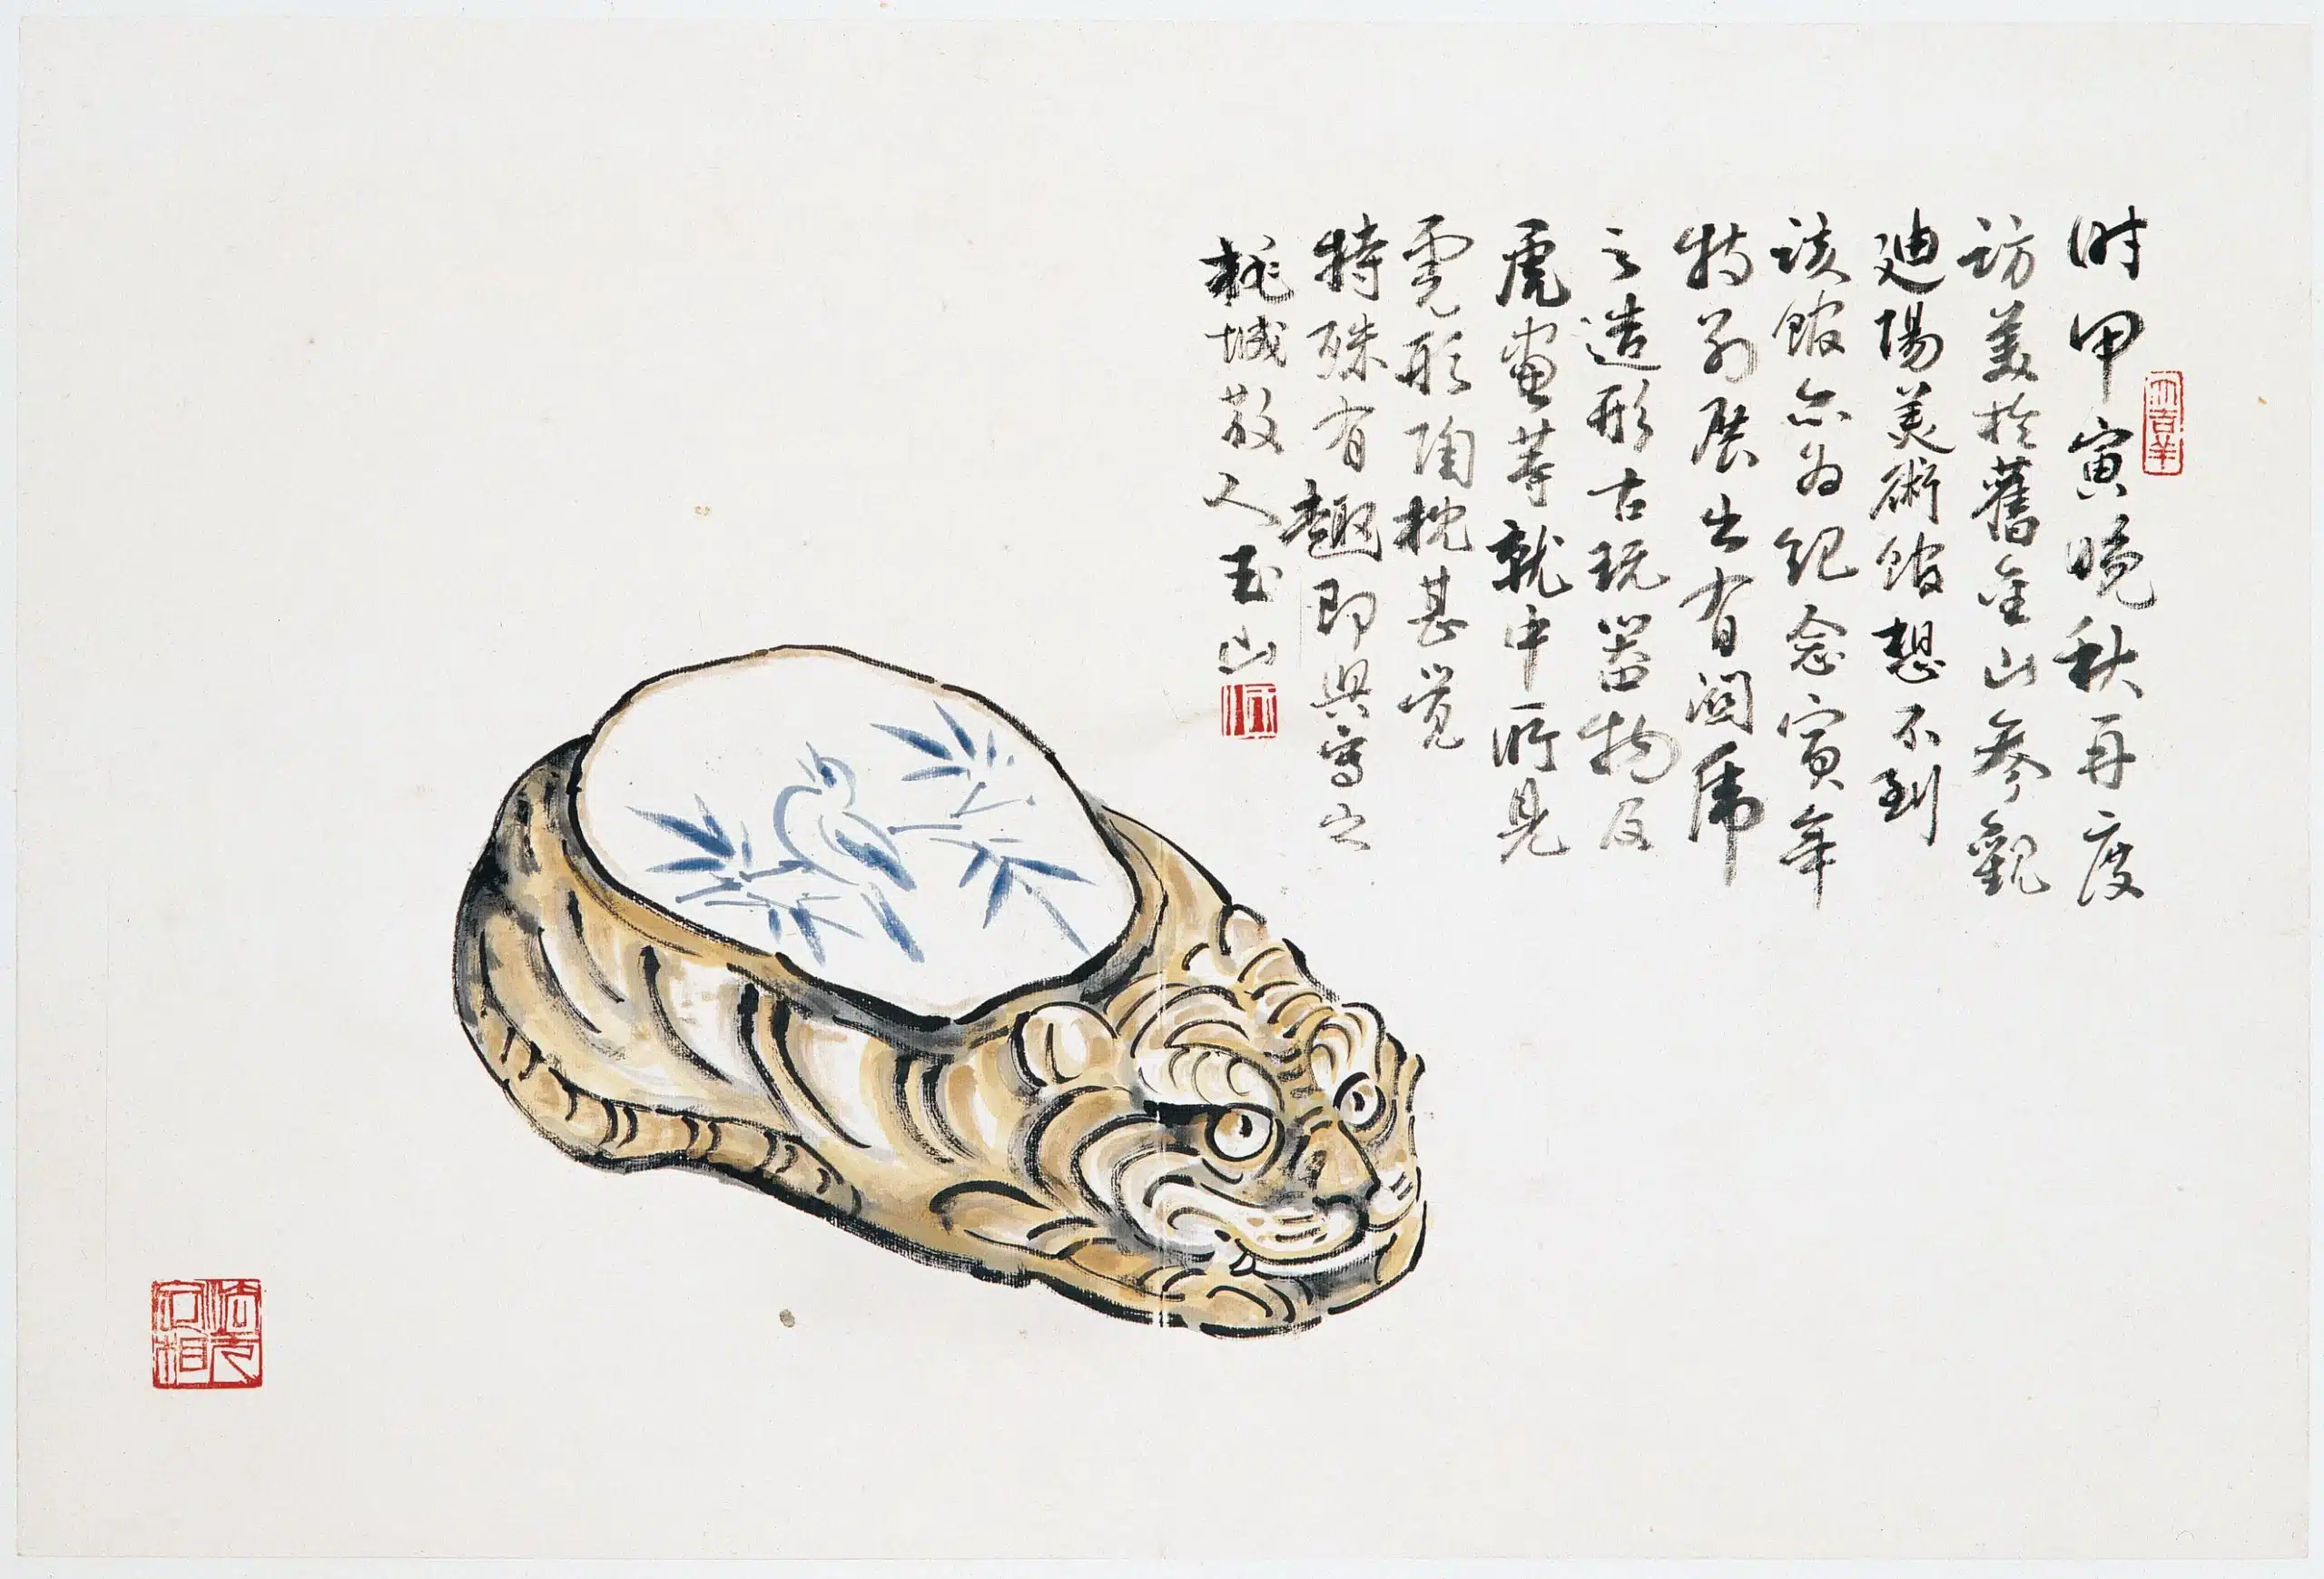 時甲寅晚秋再度
訪美於舊金山參觀
廸陽美術館想不到
該館亦為紀念寅年
特別展出有關虎
之造形古玩器物及
虎畫等就中所見
虎形陶枕甚覺
特殊有趣即興寫之
桃城散人玉山